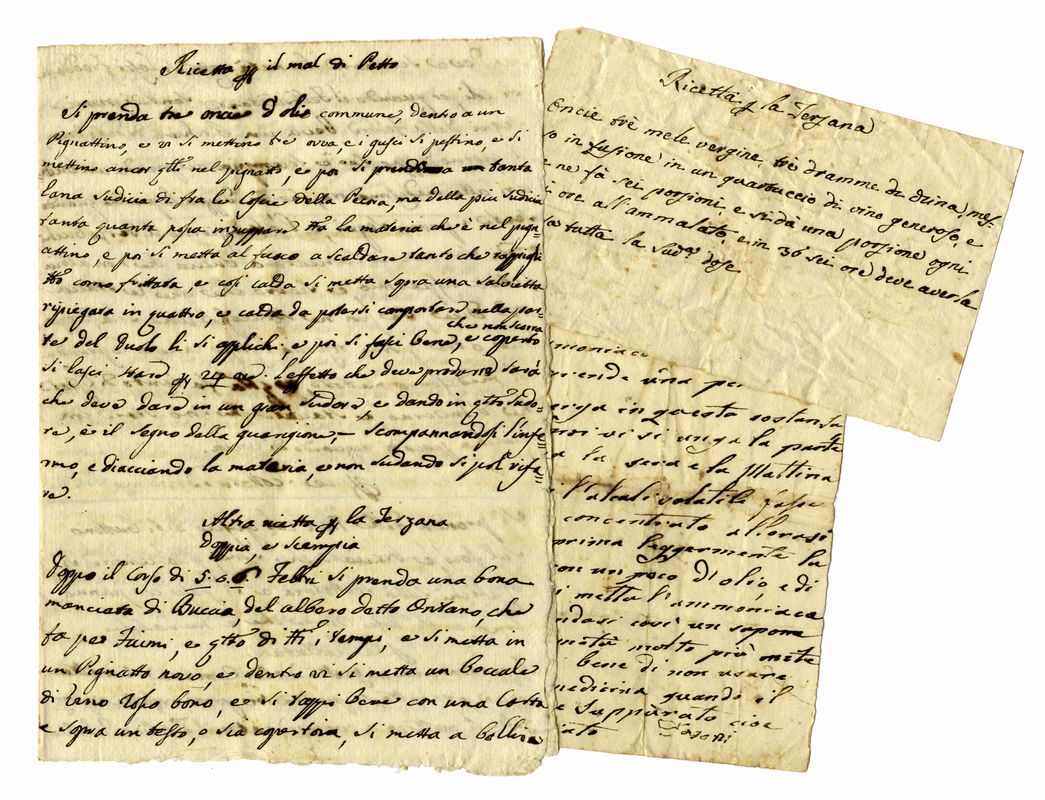 Ricetta p il mal di Petto
Si prenda tre oncie d'olio commune, dentro a un
Pignattino, e vi si mettino tre ova, e i gusci si pestino, e si
mettino ancor qti nel pignatto, e poi si prenda tanta
lana sudicia di fra le Coscie della Pecora, ma della più sudicia
tanta quanta possa inzuppare tta la materia che è nel pign-
attino, e poi si metta al fuoco a scaldare tanto che rappigli
tto come frittata, e così calda si metta sopra una salvietta
ripiegata in quattro, e calda da potersi comportare nella par-
che non scorra
te del duolo li si applichi, e poi si fasci bene, e coperto
si lasci stare p 24 ore. L'effetto che deve produrre sarà
che deve dare in un gran sudore, e dando in qto sudo-
re, è il segno della guarigione, scompannandosi l'infe-
rmo, e diacciando la materia, e non sudando si pol rifa-
re.
Altra ricetta p la Terzana
doppia, e scempia
Doppo il Corso di 5. o 6. Febri si prenda una bona
manciata di Buccia, del albero detto Ontano, che
fa per Fiumi, e qto di tti i tempi, e si metta in
un Pignatto novo, e dentro vi si metta un boccale
di vino rosso bono, e si tappi bene con una Carta
e sopra un testo, o sia copertoia, si metta a bollire
Ricetta p la Terzana
Oncie trè mele vergine, trè dramme di china, mes-
in fusione in un quartuccio di vino generoso, e
ne fà sei porzioni, e si dà una porzione ogni
ore all'ammalato, e in 36 sei ore deve averla
tutta la sudª dose
moniaca
rende una
in questa sostanza
vi si unga la parte
la sera e la Mattina
l'alcali volatile
concentrato
prima leggermente la
on un poco d'olio, e di
metta l'ammoniaca
ndosi così un sapone
molto più
bene di non usare
medicina quando il
e suppurato cioe
ato